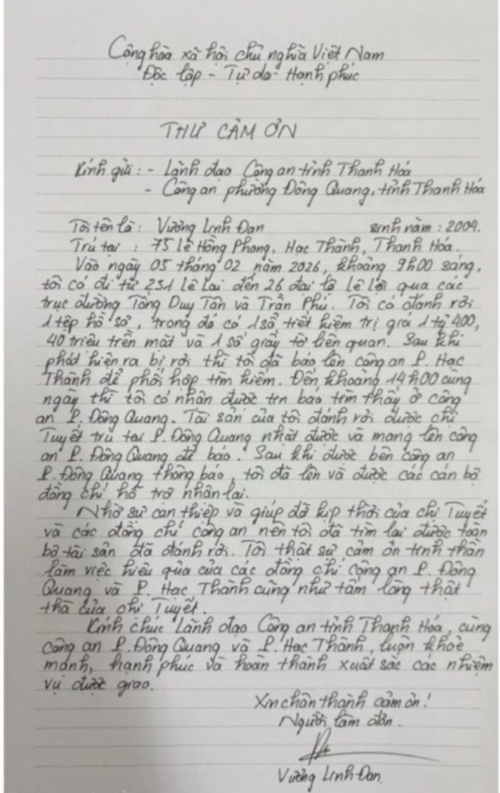 Cộng hòa xã hội chủ nghĩa Việt Nam
Độc lập - Tự do - Hạnh phúc
THƯ CẢM ƠN
Kính gửi : - Lãnh đạo Công an tỉnh Thanh Hóa
- Công an phường Đông Quang, tỉnh Thanh Hóa
Tôi tên là : Vương Linh Đan sinh năm : 2004.
Trú tại : 75 Lê Hồng Phong, Hạc Thành, Thanh Hóa.
Vào ngày 05 tháng 02 năm 2026, khoảng 9h00 sáng,
tôi có đi từ 251 Lê Lai đến 26 đại lộ Lê Lợi qua các
trục đường Tống Duy Tân và Trần Phú. Tôi có đánh rơi
1 tệp hồ sơ, trong đó có 1 sổ tiết kiệm trị giá 1 tỷ 400,
40 triệu tiền mặt và 1 số giấy tờ liên quan. Sau khi
phát hiện ra bị rơi thì tôi đã báo lên công an P. Hạc
Thành để phối hợp tìm kiếm. Đến khoảng 14h00 cùng
ngày thì tôi có nhận được tin báo tìm thấy ở công
an P. Đông Quang. Tài sản của tôi đánh rơi được chị
Tuyết trú tại P. Đông Quang nhặt được và mang lên công
an P. Đông Quang để báo. Sau khi được bên công an
P. Đông Quang thông báo, tôi đã lên và được các cán bộ
đồng chí hỗ trợ nhận lại.
Nhờ sự can thiệp và giúp đỡ kịp thời của chị Tuyết
và các đồng chí công an nên tôi đã tìm lại được toàn
bộ tài sản đã đánh rơi. Tôi thật sự cảm ơn tinh thần
làm việc hiệu quả của các đồng chí công an P. Đông
Quang và P. Hạc Thành cũng như tấm lòng thật
thà của chị Tuyết.
Kính chúc Lãnh đạo Công an tỉnh Thanh Hóa, cùng
công an P. Đông Quang và P. Hạc Thành, luôn khoẻ
mạnh, hạnh phúc và hoàn thành xuất sắc các nhiệm
vụ được giao.
Xin chân thành cảm ơn!
Người làm đơn.
Vương Linh Đan.